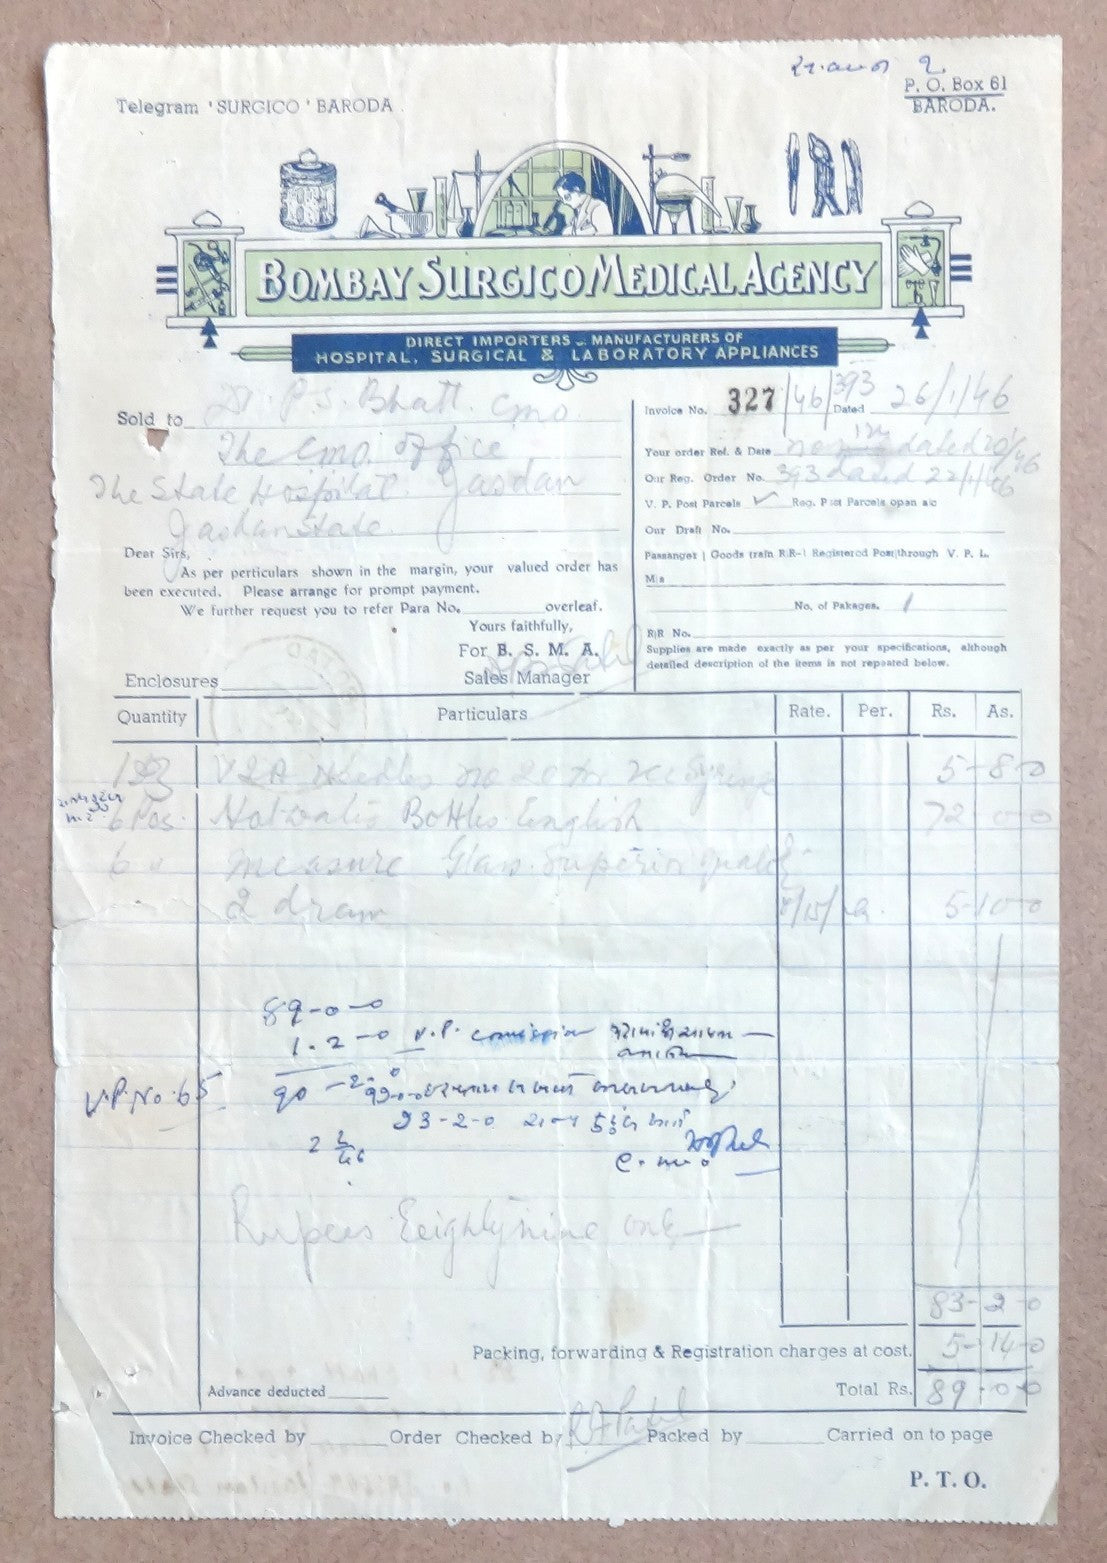 2.
P. O. Box 61
BARODA.
Telegram 'SURGICO' BARODA
BOMBAY SURGICO MEDICAL AGENCY
DIRECT IMPORTERS - MANUFACTURERS OF
HOSPITAL, SURGICAL & LABORATORY APPLIANCES
Sold to Dr. P. S. Bhatt. Cmo.
The Cmo. office
The State Hospital Jasdan
Jasdan State
Dear Sirs,
As per perticulars shown in the margin, your valued order has
been executed. Please arrange for prompt payment.
We further request you to refer Para No. overleaf.
Yours faithfully,
For B. S. M. A.
Sales Manager
Enclosures
Invoice No. 327/46/393 Dated 26/1/46
Your order Ref. & Date no dated 20/1/46
Our Reg. Order No. 393 dated 22/1/46
V. P. Post Parcels ✓ Reg. Post Parcels opan a/c
Our Draft No.
Passanger | Goods train R|R-| Registered Post|through V. P. L.
M|s
No. of Pakages. 1
R|R No.
Supplies are made exactly as per your specifications, although
detailed description of the items is not repeated below.
Quantity Particulars Rate. Per. Rs. As.
Needles no 20 5-8-0
6 Pcs. Bottles English 72-0-0
6 " measure Glass Superior quality
2 dram -/15/- 5-10-0
89-0-0
1-2-0 V.P. commission
V.P. No. 65
90-2-0
23-2-0
C. M. O.
Rupees Eeighty nine only
83-2-0
Packing, forwarding & Registration charges at cost. 5-14-0
Advance deducted Total Rs. 89-0-0
Invoice Checked by Order Checked by Packed by Carried on to page
P. T. O.